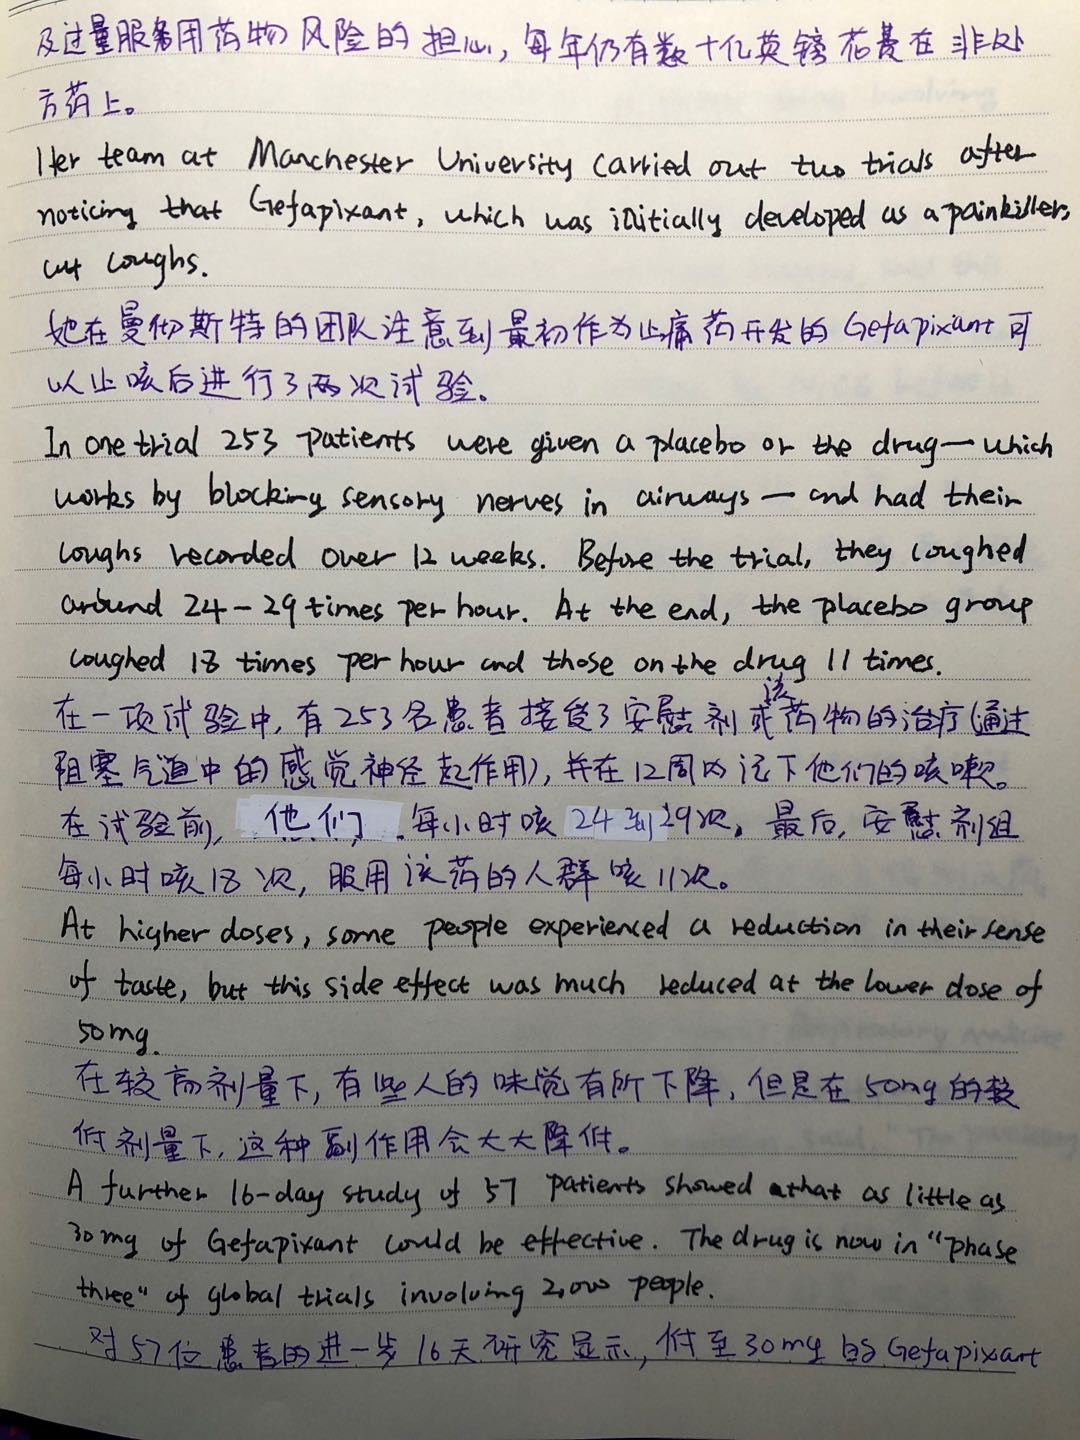 及过量服务用药物风险的担心，每年仍有数十亿英镑花费在非处
方药上。
Her team at Manchester University carried out two trials after
noticing that Gefapixant, which was initially developed as a painkiller,
cut coughs.
她在曼彻斯特的团队注意到最初作为止痛药开发的Gefapixant可
以止咳后进行了两次试验。
In one trial 253 patients were given a placebo or the drug—which
works by blocking sensory nerves in airways — and had their
coughs recorded over 12 weeks. Before the trial, they coughed
around 24-29 times per hour. At the end, the placebo group
coughed 18 times per hour and those on the drug 11 times.
在一项试验中,有253名患者接受了安慰剂或该药物的治疗(通过
阻塞气道中的感觉神经起作用),并在12周内记下他们的咳嗽。
在试验前, 他们 每小时咳 24到29次。最后,安慰剂组
每小时咳18次,服用该药的人群咳11次。
At higher doses, some people experienced a reduction in their sense
of taste, but this side effect was much reduced at the lower dose of
50mg.
在较高剂量下,有些人的味觉有所下降,但是在50mg的较
低剂量下,这种副作用会大大降低。
A further 16-day study of 57 patients showed that as little as
30mg of Gefapixant could be effective. The drug is now in "phase
three" of global trials involving 2,000 people.
对57位患者的进一步16天研究显示,低至30mg的Gefapixant